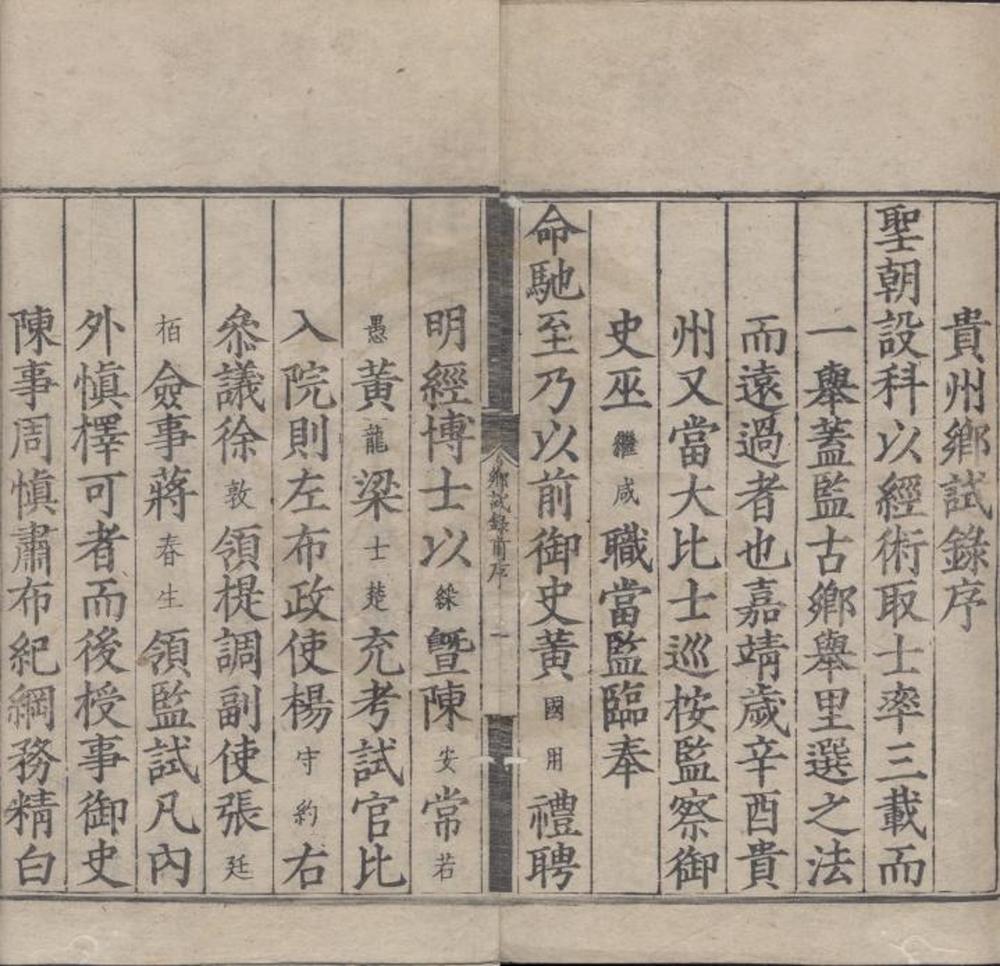 貴州鄉試錄序
聖朝設科以經術取士率三載而
一舉蓋監古鄉舉里選之法
而遠過者也嘉靖歲辛酉貴
州又當大比士巡按監察御
史巫繼咸職當監臨奉
命馳至乃以前御史黃國用禮聘
鄉試錄前序 一
明經博士以綵暨陳安常若
愚黃龍梁士楚充考試官比
入院則左布政使楊守約右
叅議徐敦領提調副使張廷
栢僉事蔣春生領監試凡內
外慎擇可者而後授事御史
陳事周慎肅布紀綱務精白